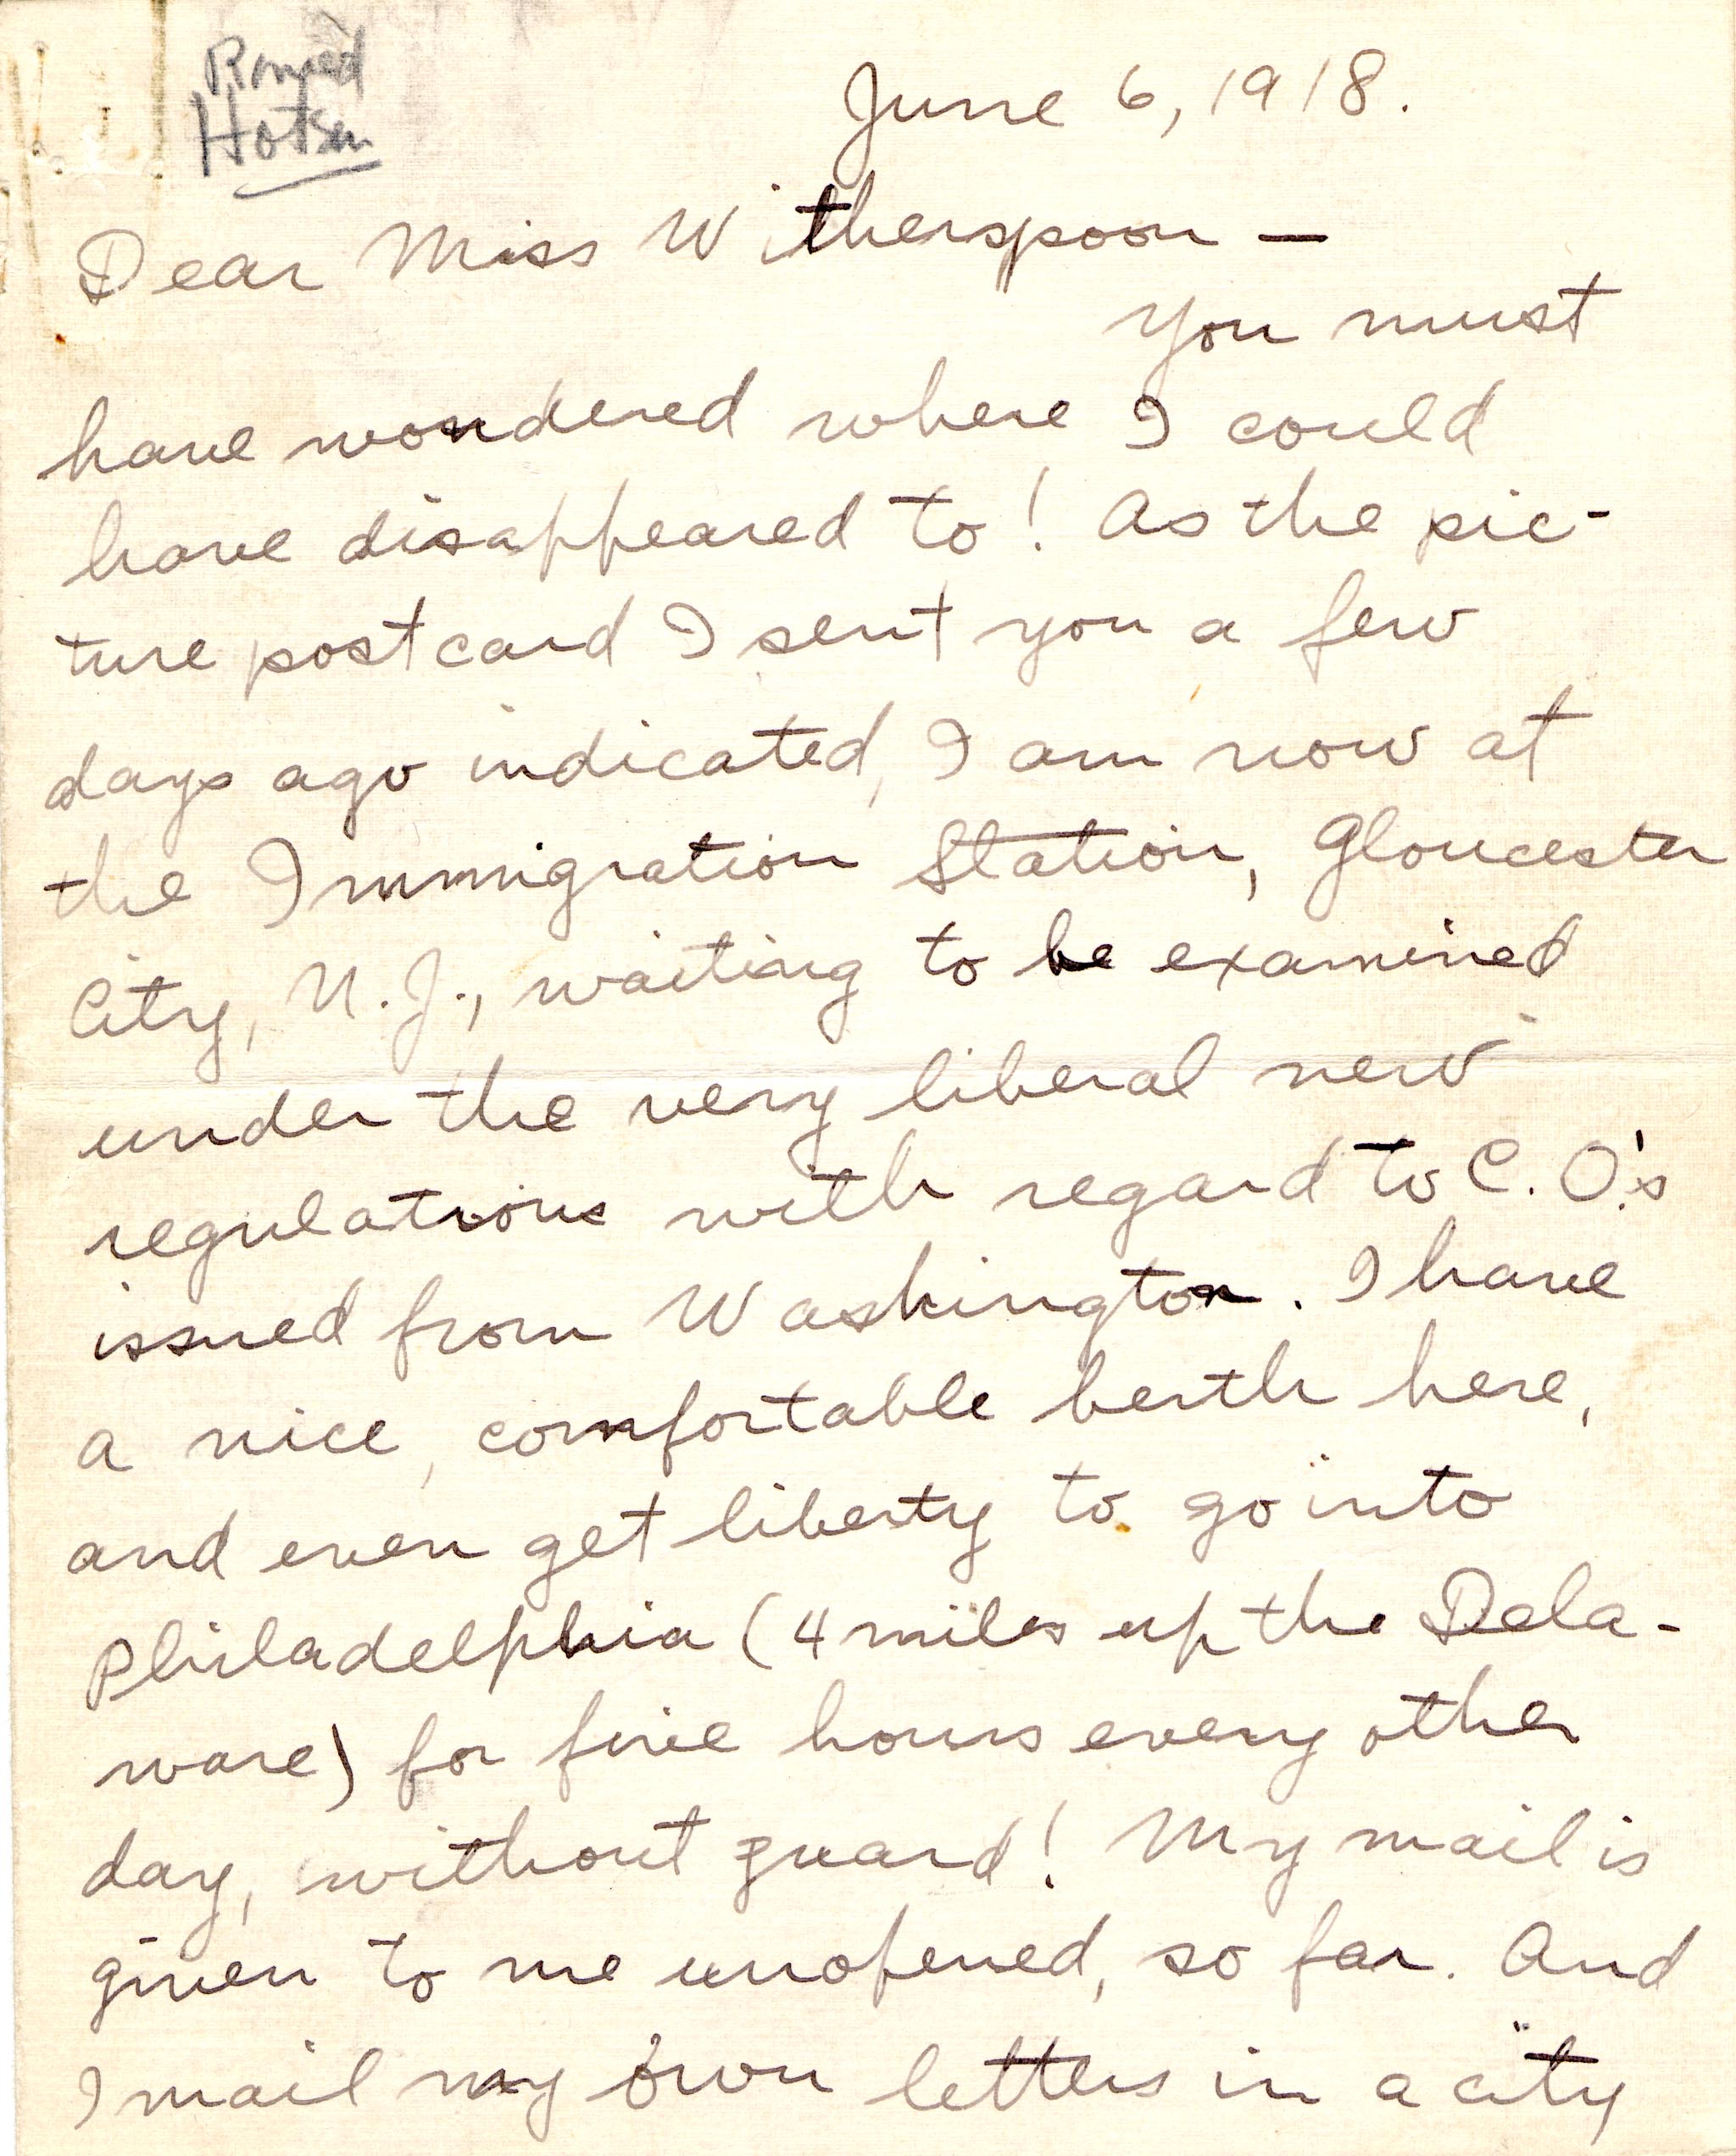 Hotsen
June 6, 1918.
Dear Miss Witherspoon —
You must
have wondered where I could
have disappeared to! As the pic-
ture postcard I sent you a few
days ago indicated, I am now at
the Immigration Station, Gloucester
City, N.J., waiting to be examined
under the very liberal new
regulations with regard to C.O.'s
issued from Washington. I have
a nice, comfortable berth here,
and even get liberty to go into
Philadelphia (4 miles up the Dela-
ware) for five hours every other
day, without guard! My mail is
given to me unopened, so far. And
I mail my own letters in a city